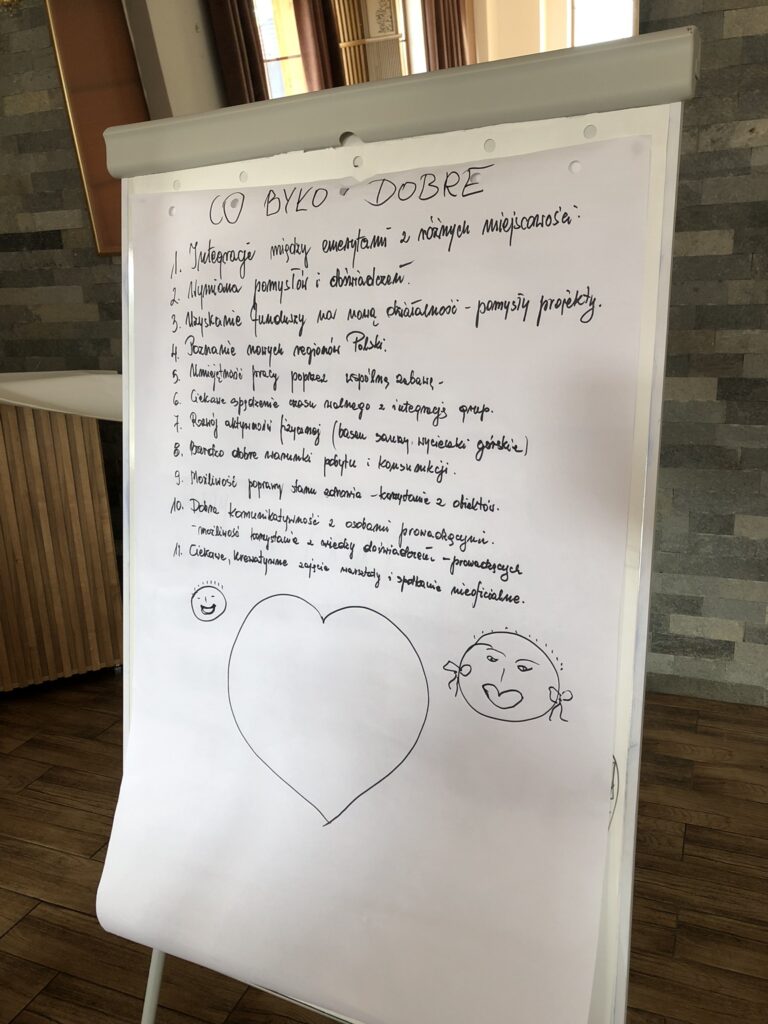 CO BYŁO DOBRE
1. Integracje między emerytami z różnych miejscowości.
2. Wymiana pomysłów i doświadczeń.
3. Uzyskanie funduszy na nową działalność - pomysły projekty.
4. Poznanie nowych regionów Polski.
5. Umiejętność pracy poprzez wspólną zabawę.
6. Ciekawe spędzenie czasu wolnego z integracją grup.
7. Rozwój aktywności fizycznej (basen sauny, wycieczki górskie)
8. Bardzo dobre warunki pobytu i konsumkcji.
9. Możliwość poprawy stanu zdrowia - korzystanie z obiektów.
10. Dobra komunikatywność z osobami prowadzącymi.
- możliwość korzystania z wiedzy doświadczeń - prowadzących
11. Ciekawe, kreatywne zajęcia warsztaty i spotkania nieoficjalne.